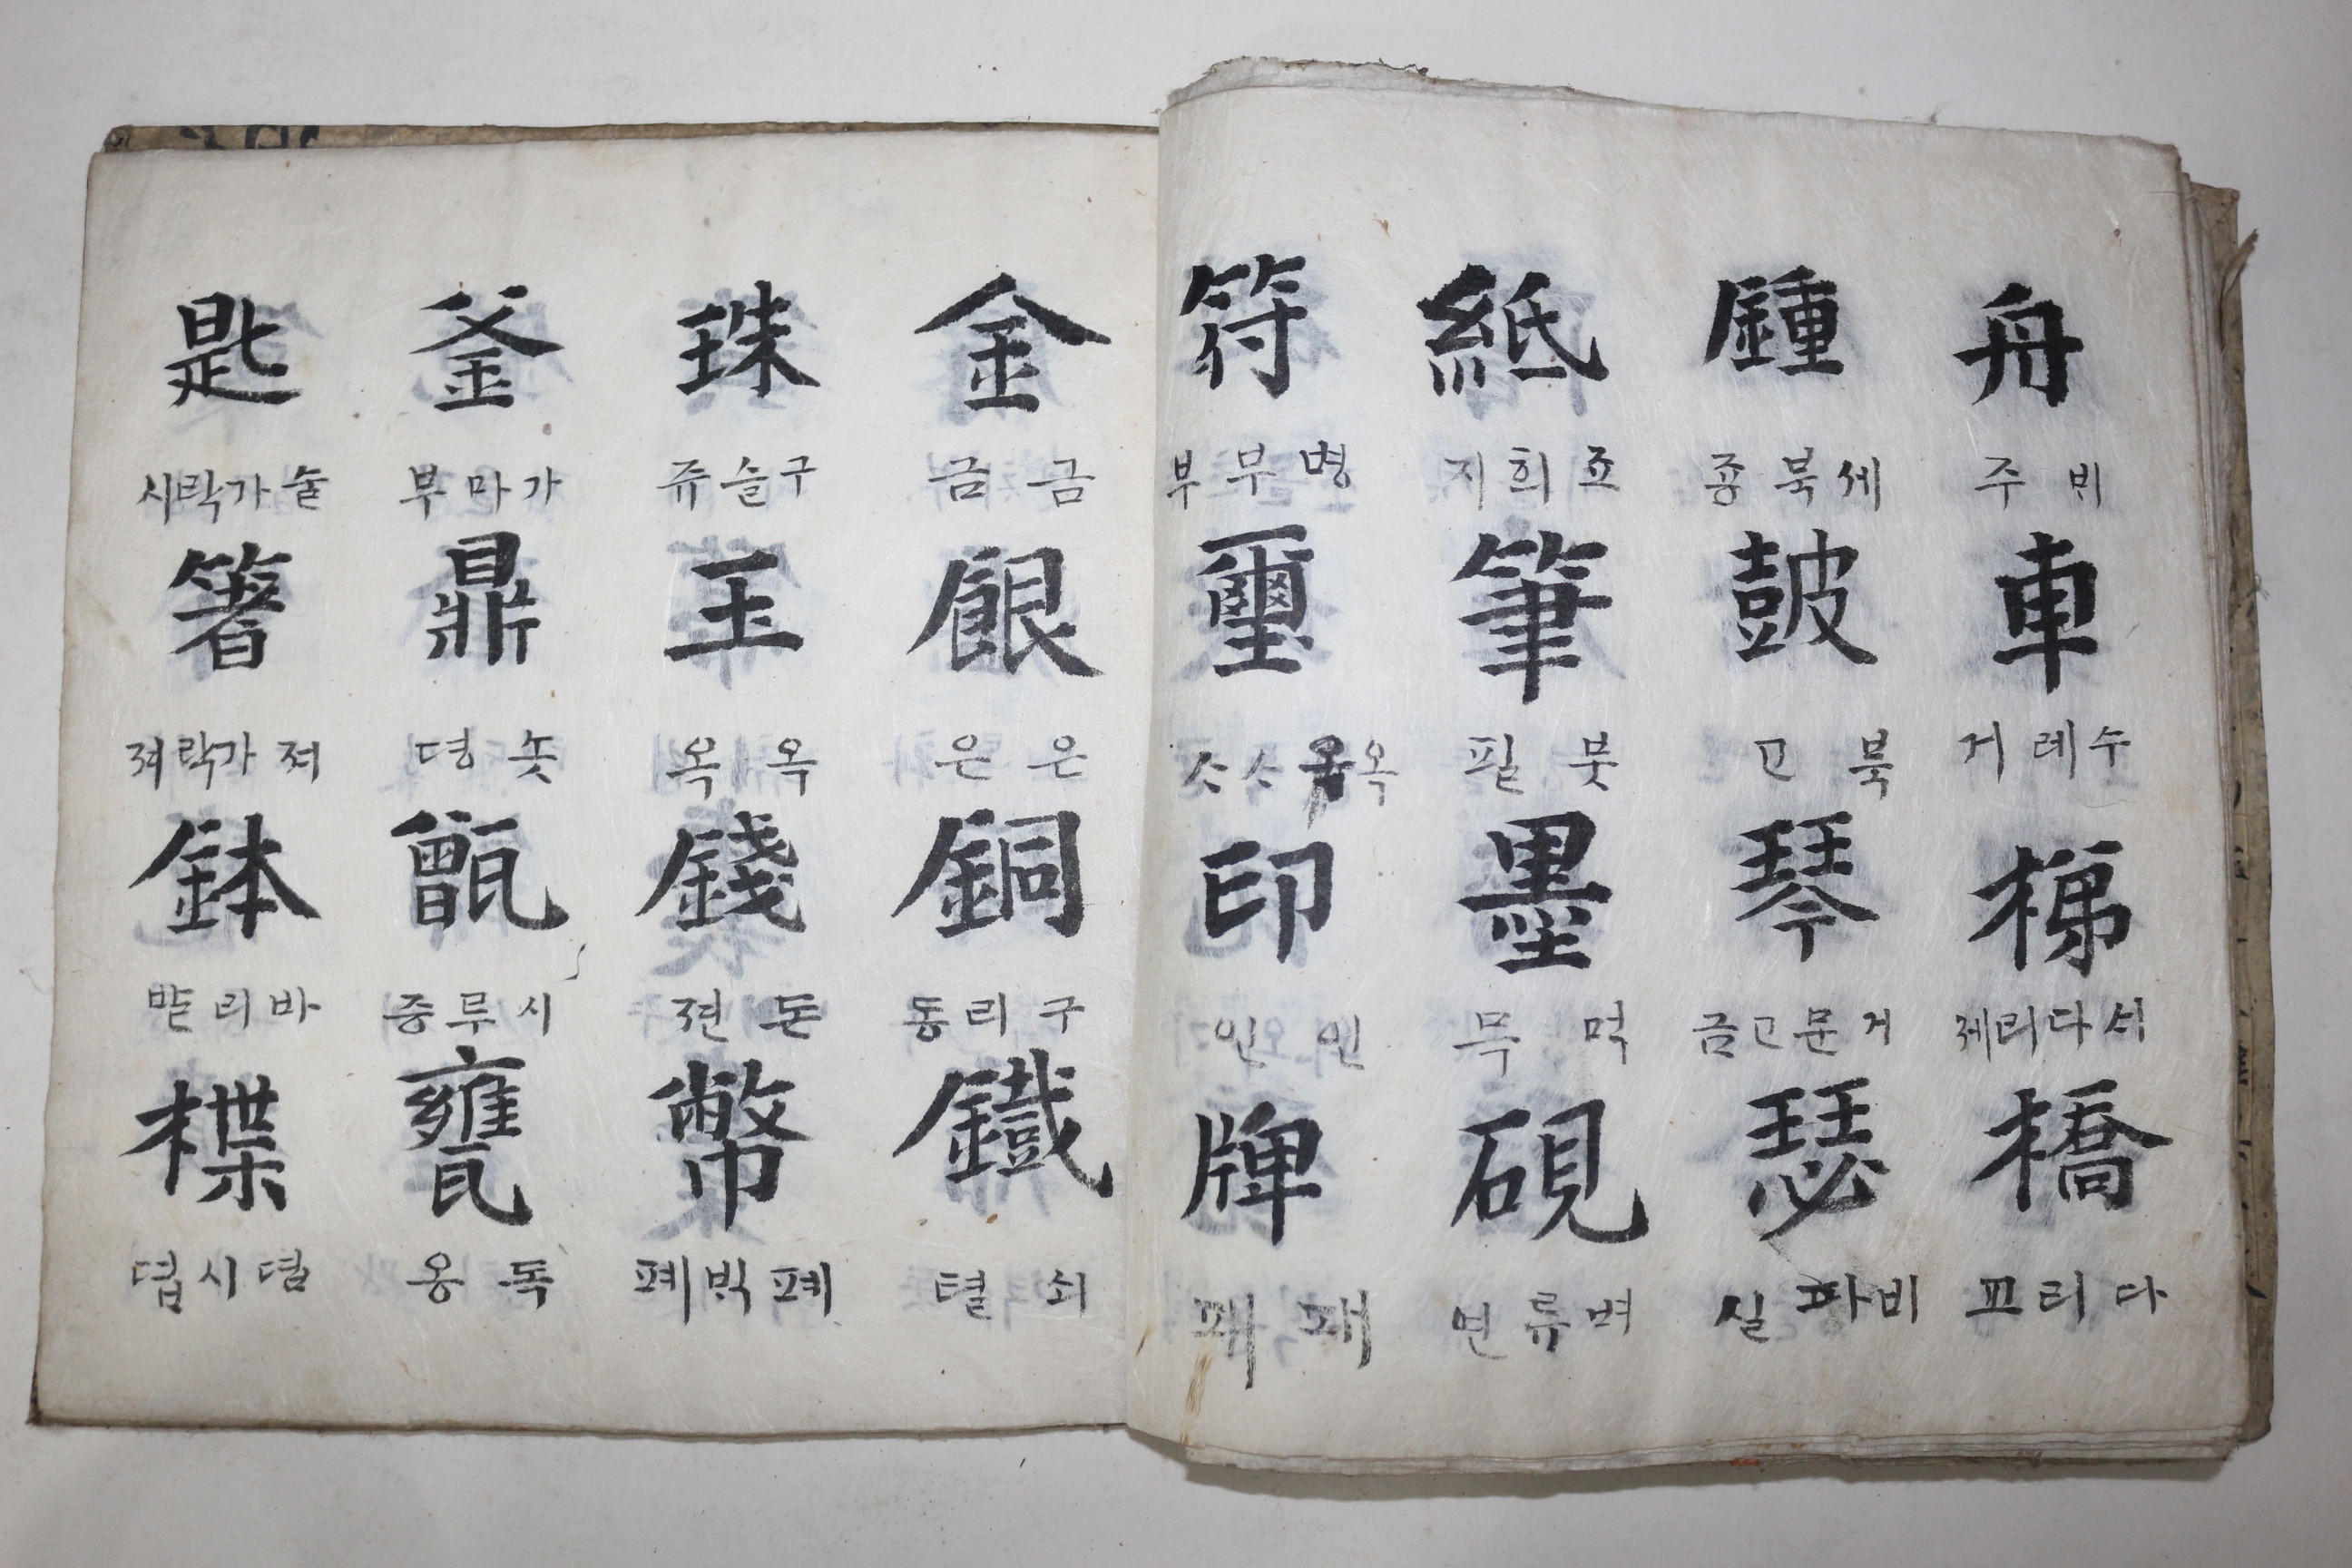 舟
비 주
車
수레 거
梯
셔다리 졔
橋
다리 교
鍾
세북 죵
皷
북 고
琴
거문고 금
瑟
비파 실
紙
죠희 지
筆
붓 필
墨
먹 묵
硯
벼류 면
符
병무 부
璽
옥
印
인 인
牌
패 패
金
금 금
銀
은 은
銅
구리 동
鐵
쇠 텰
珠
구슬 쥬
玉
옥 옥
錢
돈 젼
幣
폐빅 폐
釜
가마 부
鼎
솟 뎡
甑
시루 증
甕
독 옹
匙
술가락 시
箸
져가락 져
鉢
바리 발
楪
뎝시 뎝